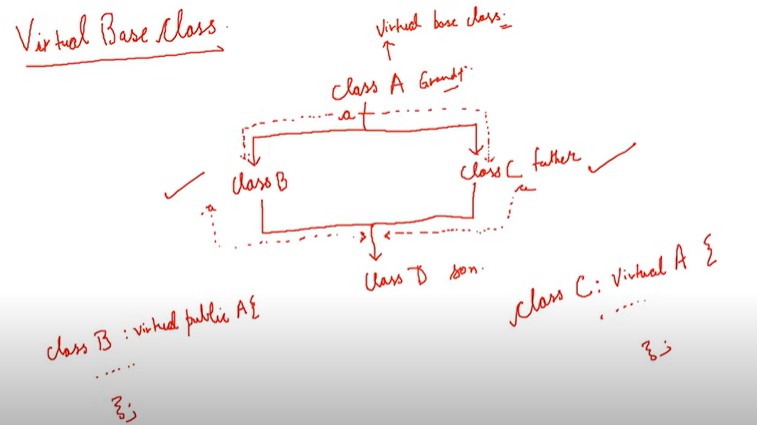 Virtual Base Class.
Virtual base class.
Class A Grandf.
a
Class B
Class C father
a
a
Class D son.
class B : virtual public A{
......
};
Class C : Virtual A {
......
};